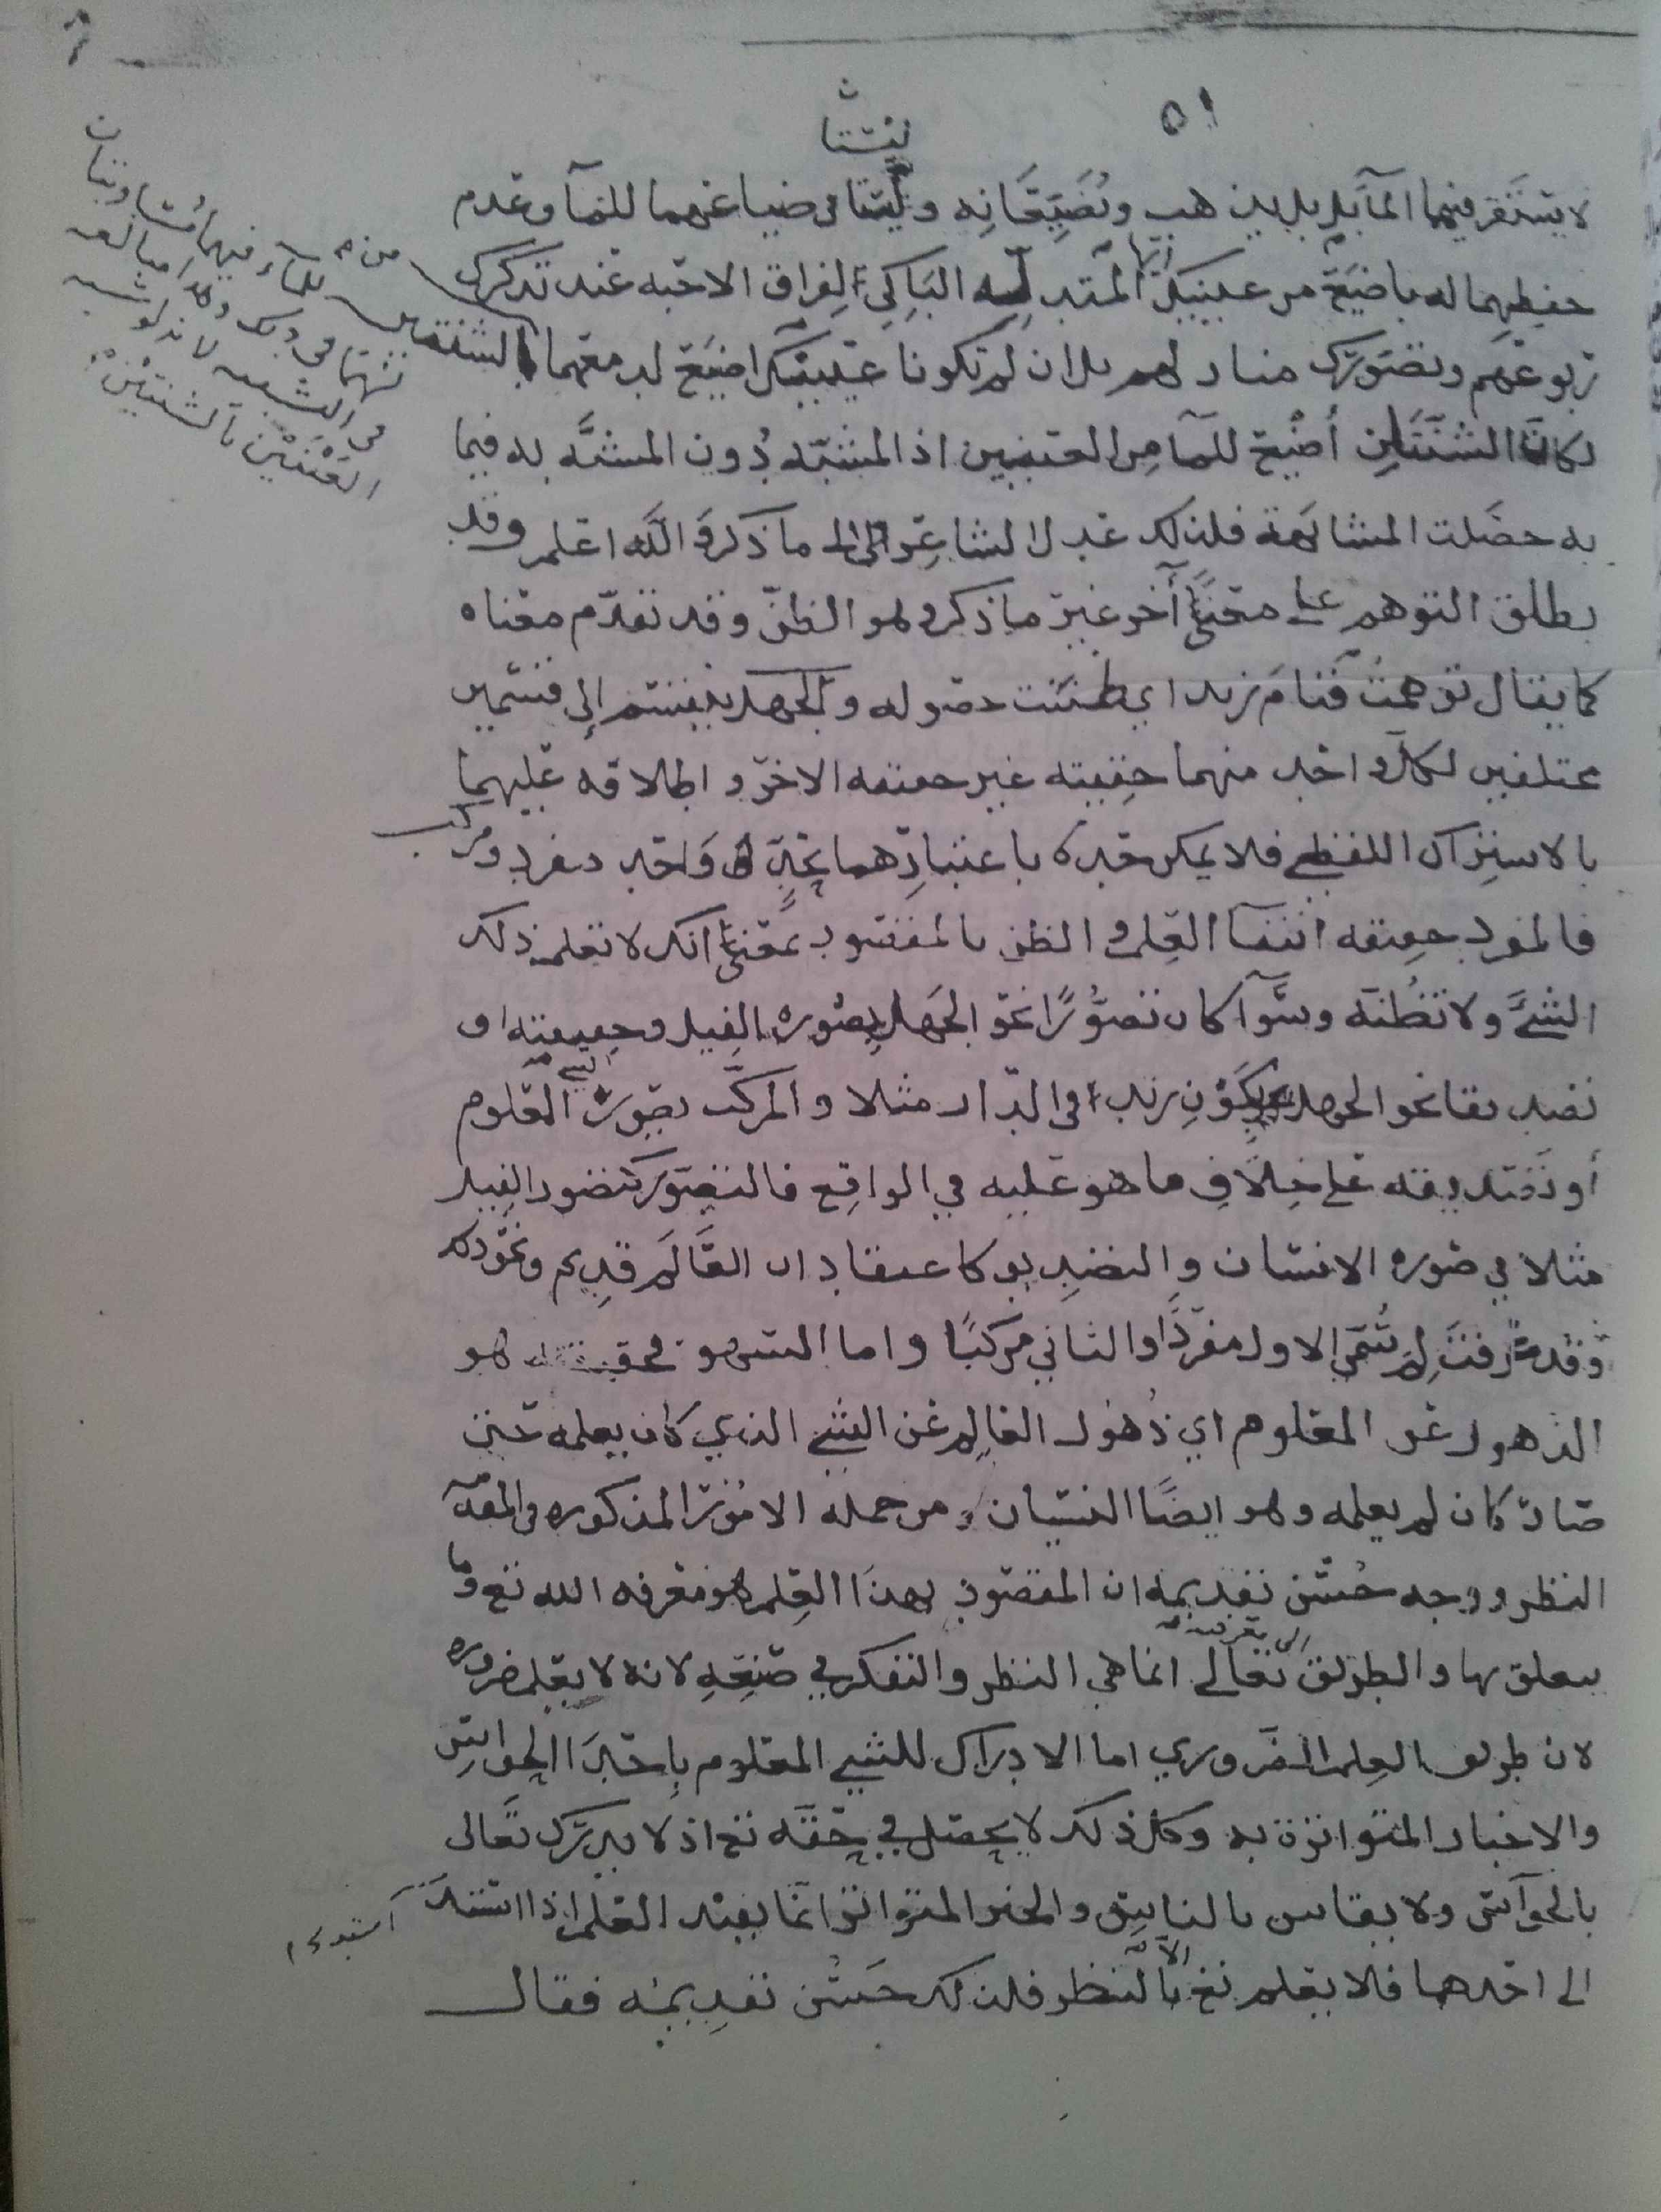 ٥١
ليستا
لا يستقر فيهما المآء بل يذهب ويُضَيِّعَانِه وليستا في ضياعهما للمآ وعدم
حفظهما له باضيَع من عينيك ايها المتدله البَاكي لِفراق الاحبه عند تذكرك
ربوعَهم وتصَوّرك منازلهم بل ان لم تكونا عينيك اضيَع لدمعهما من الشنتين
لكانَ الشنتَانِ أضيع للمآ مِن العينين اذ المشبّه دُون المشبَّه به فيما
به حصَلت المشابهة فلذلك عدل الشاعر الى ما ذكر والله اعلم وقد
يطلق التوهم على معنىً آخر غير ما ذكر وهو الظنّ وقد تقدّم معناه
كما يقال توهمت قيامَ زيد اي ظننت حصوله والجهل ينقسم إلى قسمين
مختلفين لكل واحد منهما حقيقته غير حقيقه الاخر واطلاقه عليهما
بالاشتراك اللفظي فلا يمكن حده باعتبارهما بحدٍّ وَاحد مفرد ومركب
فالمفرد حقيقه انتفآ العِلم والظن بالمقصود بمعنىً انك لا تعلم ذلك
الشيَّ ولا تظُنه وسَوآ كان تصوُّرًا نحو الجَهل بصُوره الفيل وحقيقته او
تصديقا نحو الجهل بكَوْنِ زيد في الدّار مثلا والمركّب تصور الشي المعلوم
أو تصديقه على خِلَافِ ما هو عليه في الواقِع فالتصَوّر كتصور الفيل
مثلا في صوره الانسان والتصدِيق كاعتقاد ان العَالَم قدِيم ونحو ذلك
وقد عرفتَ لِمَ سُمّي الاول مفردًا والثاني مركبًا واما السهو فحقيقته هو
الذهول عن المعلوم اي ذُهُول العالِم عن الشي الذي كان يعلمه حتى
صار كان لم يعلمه وهو ايضًا النسيان ومن جمله الامُور المذكوره في المقدمه
النظر ووجه حُسْن تقديمه ان المقصُود بهذَا العِلم هو معرفه الله تع وما
يتعلق بها والطريق الى معرفته تعالى انما هي النظر والتفكر في صنعِهِ لانه لا يعلم ضروره
لان طريق العِلم الضّروري اما الادراك للشي المعلوم بِاحدَا الحواسّ
والاخبار المتواتره به وكل ذلك لا يحصل في حقه تع اذ لا يدرَك تعالى
بالحوآس ولا يقاس بالناس والخبر المتواتر انما يفيد العلم اذا استند
الى احدها فلا يعلم تع الا بالنظر فلذلك حَسُن تقدِيمُه فقال
للمآء فيهما مُتساويتان
في ذلك وهذا مبالغه
في التشبيه لانه لو شبه
العَيْنَيْن بالشنتَيْن